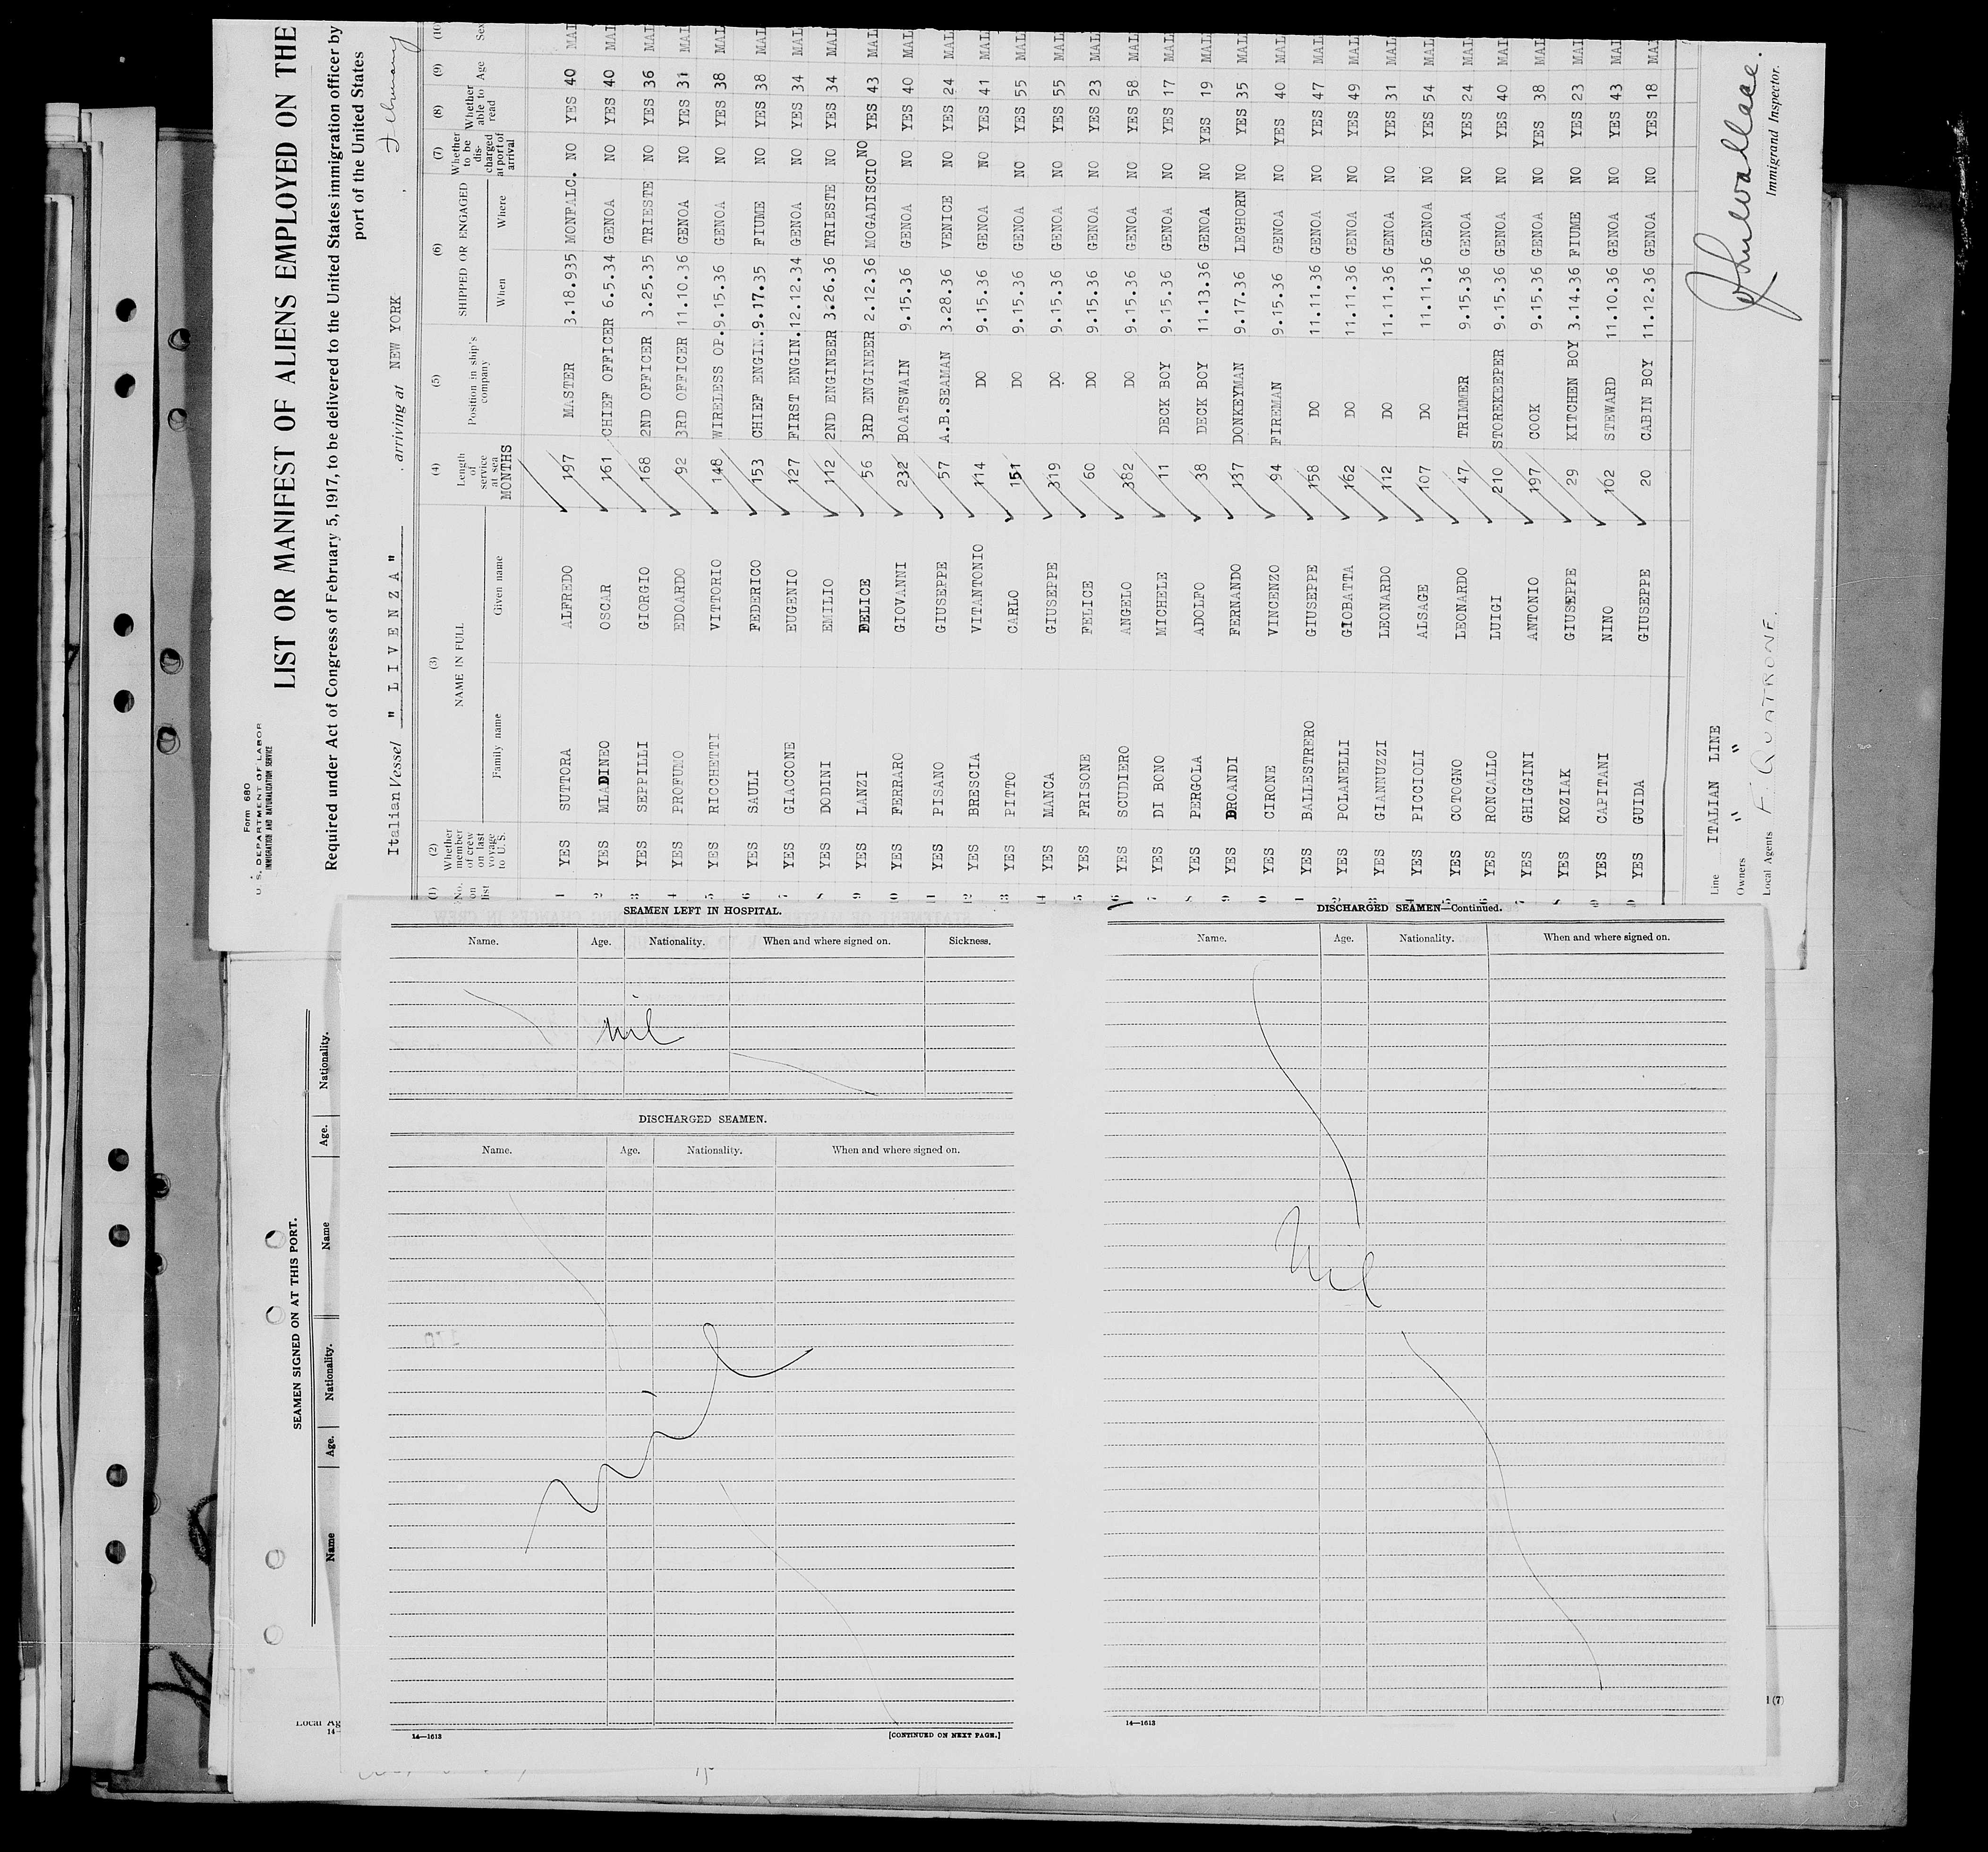 Form 680
U. S. DEPARTMENT OF LABOR
IMMIGRATION AND NATURALIZATION SERVICE
LIST OR MANIFEST OF ALIENS EMPLOYED ON THE
Required under Act of Congress of February 5, 1917, to be delivered to the United States immigration officer by
port of the United States
Italian Vessel " L I V E N Z A " arriving at NEW YORK
(1) (2) (3) (4) (5) (6) (7) (8) (9) (10)
No. on list Whether member of crew on last voyage to U. S. NAME IN FULL Family name Given name Length of service at sea MONTHS Position in ship's company SHIPPED OR ENGAGED When Where Whether to be discharged at port of arrival Whether able to read Age Sex
1 YES SUTTORA ALFREDO 197 MASTER 3.18.935 MONFALC. NO YES 40 MAL
2 YES MLADINEO OSCAR 161 CHIEF OFFICER 6.5.34 GENOA NO YES 40 MAL
3 YES SEPPILLI GIORGIO 168 2ND OFFICER 3.25.35 TRIESTE NO YES 36 MAL
4 YES PROFUMO EDOARDO 92 3RD OFFICER 11.10.36 GENOA NO YES 31 MAL
5 YES RICCHETTI VITTORIO 148 WIRELESS OP. 9.15.36 GENOA NO YES 38 MAL
6 YES SAULI FEDERICO 153 CHIEF ENGIN. 9.17.35 FIUME NO YES 38 MAL
7 YES GIACCONE EUGENIO 127 FIRST ENGIN. 12.12.34 GENOA NO YES 34 MAL
8 YES DODINI EMILIO 112 2ND ENGINEER 3.26.36 TRIESTE NO YES 34 MAL
9 YES LANZI FELICE 56 3RD ENGINEER 2.12.36 MOGADISCIO NO YES 43 MAL
10 YES FERRARO GIOVANNI 232 BOATSWAIN 9.15.36 GENOA NO YES 40 MAL
11 YES PISANO GIUSEPPE 57 A.B.SEAMAN 3.28.36 VENICE NO YES 24 MAL
12 YES BRESCIA VITANTONIO 114 DO 9.15.36 GENOA NO YES 41 MAL
13 YES PITTO CARLO 151 DO 9.15.36 GENOA NO YES 55 MAL
14 YES MANCA GIUSEPPE 319 DO 9.15.36 GENOA NO YES 55 MAL
5 YES FRISONE FELICE 60 DO 9.15.36 GENOA NO YES 23 MAL
6 YES SCUDIERO ANGELO 382 DO 9.15.36 GENOA NO YES 58 MAL
7 YES DI BONO MICHELE 11 DECK BOY 9.15.36 GENOA NO YES 17 MAL
8 YES PERGOLA ADOLFO 38 DECK BOY 11.13.36 GENOA NO YES 19 MAL
9 YES BROANDI FERNANDO 137 DONKEYMAN 9.17.36 LEGHORN NO YES 35 MAL
0 YES CIRONE VINCENZO 94 FIREMAN 9.15.36 GENOA NO YES 40 MAL
1 YES BALLESTRERO GIUSEPPE 158 DO 11.11.36 GENOA NO YES 47 MAL
2 YES POLANELLI GIOBATTA 162 DO 11.11.36 GENOA NO YES 49 MAL
3 YES GIANNUZZI LEONARDO 112 DO 11.11.36 GENOA NO YES 31 MAL
4 YES PICCIOLI ALSAGE 107 DO 11.11.36 GENOA NO YES 54 MAL
5 YES COTOGNO LEONARDO 47 TRIMMER 9.15.36 GENOA NO YES 24 MAL
6 YES RONCALLO LUIGI 210 STOREKEEPER 9.15.36 GENOA NO YES 40 MAL
7 YES GHIGGINI ANTONIO 197 COOK 9.15.36 GENOA NO YES 38 MAL
8 YES KOZIAK GIUSEPPE 29 KITCHEN BOY 3.14.36 FIUME NO YES 23 MAL
9 YES CAPITANI NINO 102 STEWARD 11.10.36 GENOA NO YES 43 MAL
0 YES GUIDA GIUSEPPE 20 CABIN BOY 11.12.36 GENOA NO YES 18 MAL
Line ITALIAN LINE
Owners " "
Local Agents F. QUATRONE
Immigrant Inspector.
SEAMEN LEFT IN HOSPITAL.
Name. Age. Nationality. When and where signed on. Sickness.
nil
DISCHARGED SEAMEN.
Name. Age. Nationality. When and where signed on.
nil
14—1613 [CONTINUED ON NEXT PAGE.]
DISCHARGED SEAMEN—Continued.
Name. Age. Nationality. When and where signed on.
Nil
14—1613
SEAMEN SIGNED ON AT THIS PORT.
Name Age. Nationality. Name Age. Nationality.
Local Ag
14